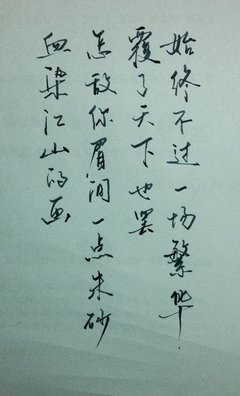 血染江山的画
怎敌你眉间一点朱砂
覆了天下也罢
始终不过一场繁华.